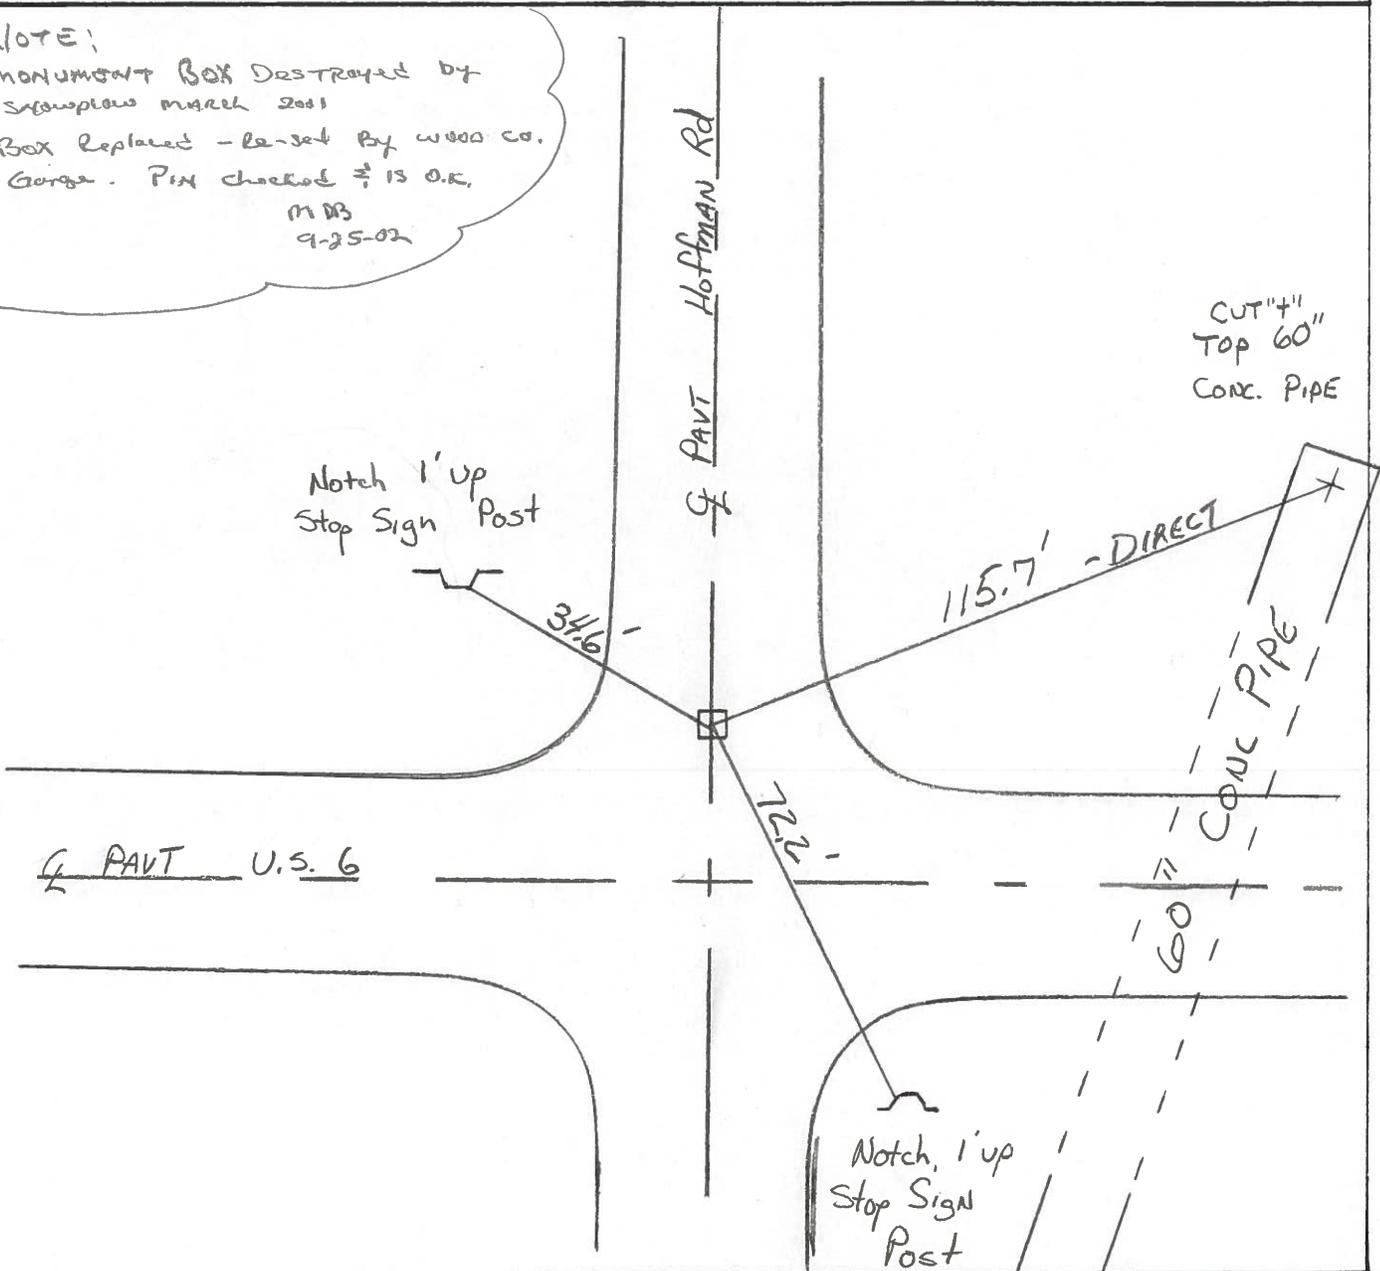 NOTE:
MONUMENT BOX DESTROYED by
SNOWPLOW MARCH 2001
BOX Replaced - Re-set By WOOD CO.
Garage. PIN checked & IS O.K.
MDB
9-25-02
℄ PAVT Hoffman Rd
CUT "+"
TOP 60"
CONC. PIPE
Notch 1' up
Stop Sign Post
34.6'
115.7' - DIRECT
72.2'
60" CONC PIPE
℄ PAVT U.S. 6
Notch, 1' up
Stop Sign
Post